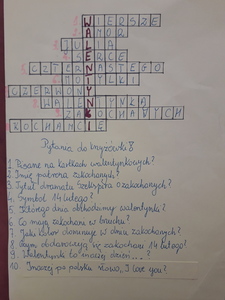 WIERSZE
AMOR
JULIA
SERCE
CZTERNASTEGO
MOTYLKI
CZERWONY
WALENTYNKA
ZAKOCHANYCH
KOCHAM CIĘ
Pytania do krzyżówki
1. Pisane na kartkach walentynkowych?
2. Imię patrona zakochanych?
3. Tytuł dramatu Szekspira o zakochanych?
4. Symbol 14 lutego?
5. Którego dnia obchodzimy walentynki?
6. Co mają zakochani w brzuchu?
7. Jaki kolor dominuje w dniu zakochanych?
8. Czym obdarowują się zakochani 14 lutego?
9. Walentynki to inaczej dzień...?
10. Inaczej po polsku słowo, I love you?